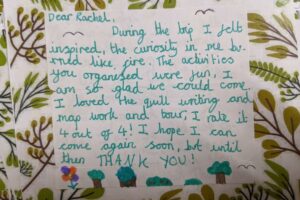 Dear Rachel,
During the trip I felt
inspired, the curiosity in me bu-
rned like fire. The activities
you organised were fun, I
am so glad we could come.
I loved the quill writing and
map work and tour, I rate it
4 out of 4! I hope I can
come again soon, but until
then THANK YOU!